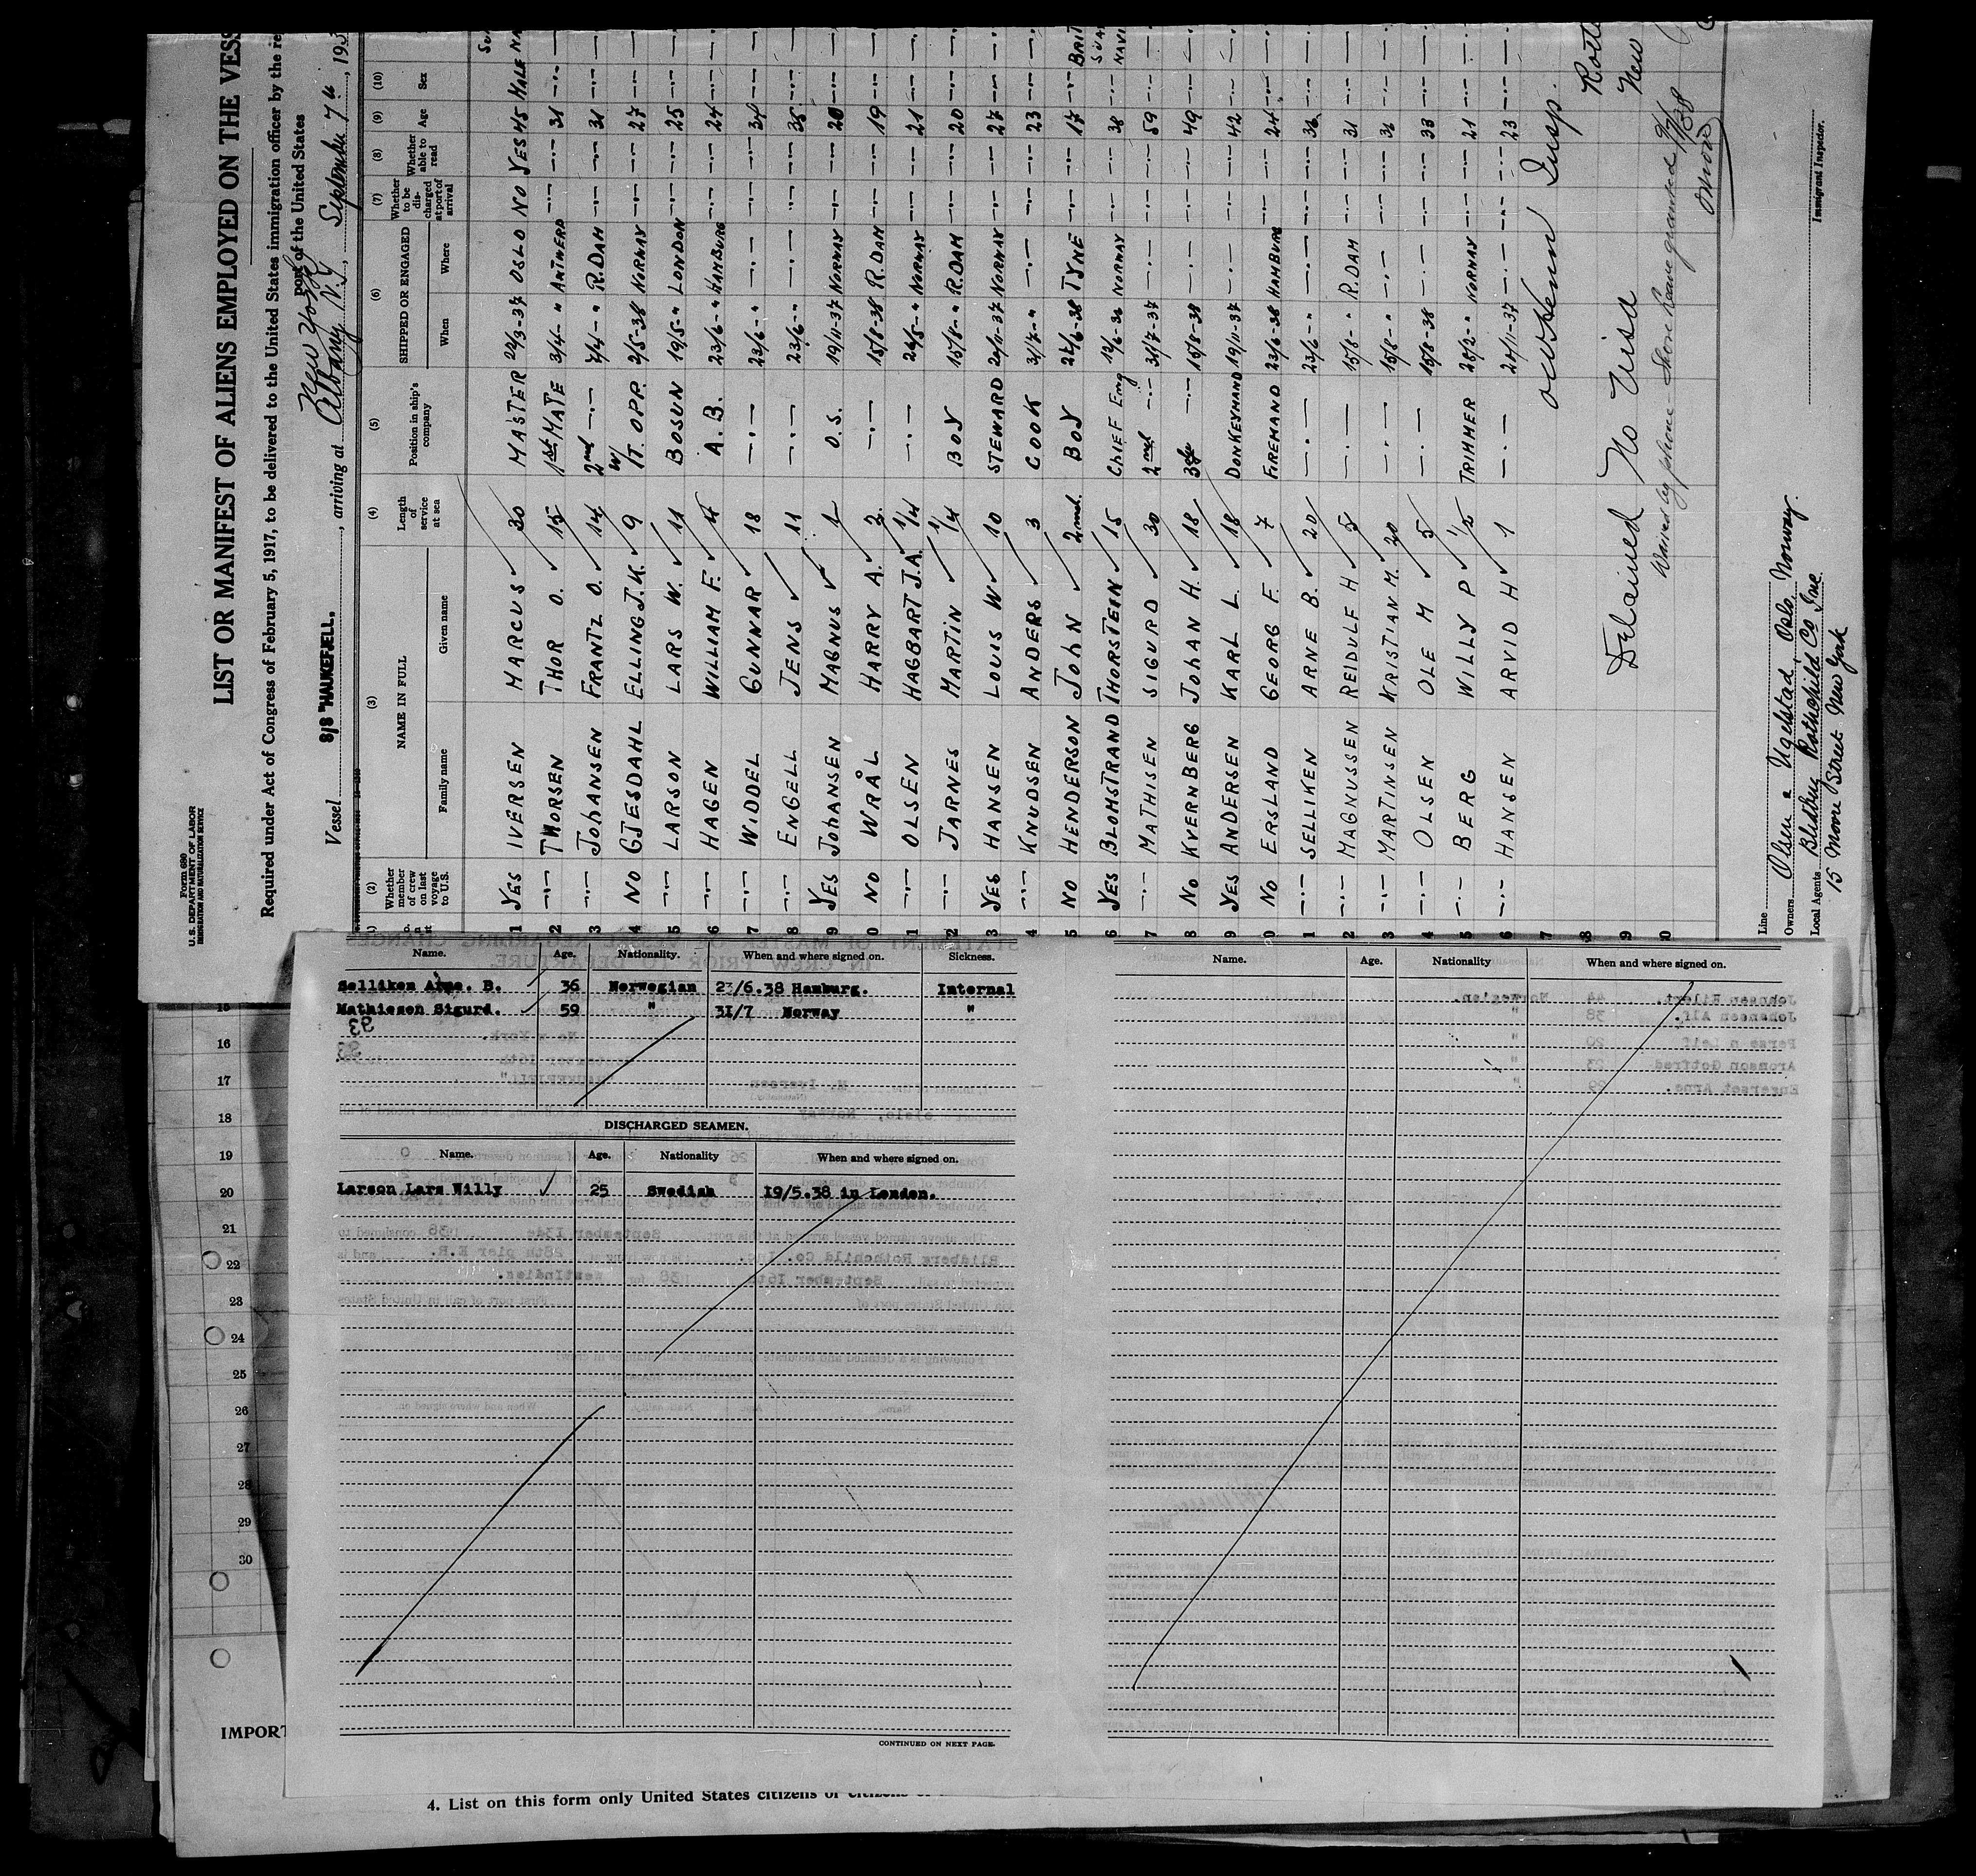 Form 680
U. S. DEPARTMENT OF LABOR
IMMIGRATION AND NATURALIZATION SERVICE
LIST OR MANIFEST OF ALIENS EMPLOYED ON THE VESS
Required under Act of Congress of February 5, 1917, to be delivered to the United States immigration officer by the re
port of the United States
New York
Vessel S/S "HAUKEFJELL. , arriving at Albany N.Y. , September 7th , 193
(2) Whether member of crew on last voyage to U.S. (3) NAME IN FULL Family name Given name (4) Length of service at sea (5) Position in ship's company (6) SHIPPED OR ENGAGED When Where (7) Whether to be discharged at port of arrival (8) Whether able to read (9) Age (10) Sex
1 YES IVERSEN MARCUS 30 MASTER 22/3-37 OSLO NO YES 45 MALE
2 -"- THORSEN THOR O. 15 1st MATE 3/4- " ANTWERP -"- -"- 31 -"-
3 -"- JOHANSEN FRANTZ O. 14 2nd -"- 7/4- " R.DAM -"- -"- 31 -"-
4 NO GJESDAHL ELLING J.K. 9 W/T. OPP. 2/5-38 NORWAY -"- -"- 27 -"-
5 -"- LARSON LARS W. 11 BOSUN 19/5- " LONDON -"- -"- 25 -"-
6 -"- HAGEN WILLIAM F. 4 A.B. 23/6- " HAMBURG -"- -"- 24 -"-
7 -"- WIDDEL GUNNAR 18 -"- 23/6- " -"- -"- -"- 34 -"-
8 -"- ENGELL JENS 11 -"- 23/6- " -"- -"- -"- 35 -"-
9 YES JOHANSEN MAGNUS 1 O.S. 19/11-37 NORWAY -"- -"- 20 -"-
0 NO WRÅL HARRY A. 2 -"- 15/8-38 R.DAM -"- -"- 19 -"-
1 -"- OLSEN HAGBART J.A. 1/4 -"- 26/5- " NORWAY -"- -"- 21 -"-
2 -"- JARNES MARTIN 1/4 BOY 15/8- " R.DAM -"- -"- 20 -"-
3 YES HANSEN LOUIS W 10 STEWARD 20/11-37 NORWAY -"- -"- 27 -"-
4 -"- KNUDSEN ANDERS 3 COOK 31/7- " -"- -"- -"- 23 -"-
5 NO HENDERSON JOHN 2 md. BOY 22/6-38 TYNE -"- -"- 17 -"- BRIT
6 YES BLOMSTRAND THORSTEIN 15 CHIEF Eng 12/6-36 NORWAY -"- -"- 38 -"-
7 -"- MATHISEN SIGURD 30 2nd -"- 31/7-37 -"- -"- -"- 59 -"-
8 NO KVERNBERG JOHAN H. 18 3die -"- 15/8-38 -"- -"- -"- 49 -"-
9 YES ANDERSEN KARL L. 18 DONKEYMAND 19/11-37 -"- -"- -"- 42 -"-
0 NO ERSLAND GEORG F. 7 FIREMAND 23/6-38 HAMBURG -"- -"- 24 -"-
1 -"- SELLIKEN ARNE B. 20 -"- 23/6- " -"- -"- -"- 36 -"-
2 -"- MAGNUSSEN REIDULF H 5 -"- 15/8- " R.DAM -"- -"- 31 -"-
3 -"- MARTINSEN KRISTIAN M. 20 -"- 15/8- " -"- -"- -"- 36 -"-
4 -"- OLSEN OLE M 5 -"- 15/8-38 -"- -"- 33 -"-
5 -"- BERG WILLY P 1/2 TRIMMER 25/2- " NORWAY -"- -"- 21 -"-
6 -"- HANSEN ARVID H 1 -"- 24/11-37 -"- -"- -"- 23 -"-
7 Insp.
8 Detained No Visa
9 Waived by phone - Shore leave granted 9/7/38
0
Line
Owners Olsen & Ugelstad, Oslo, Norway.
Local Agents Blidberg Rothchild Co Inc.
15 Moore Street New York
Immigrant Inspector.
Name. Age. Nationality. When and where signed on. Sickness.
Selliken Arne. B. 36 Norwegian 23/6.38 Hamburg. Internal
Mathiesen Sigurd. 59 " 31/7 Norway "
DISCHARGED SEAMEN.
Name. Age. Nationality When and where signed on.
Larson Lars Willy 25 Swedish 19/5.38 in London.
CONTINUED ON NEXT PAGE.
Name. Age. Nationality When and where signed on.
15
16
17
18
19
20
21
22
23
24
25
26
27
28
29
30
IMPORT
4. List on this form only United States citizens or citizens